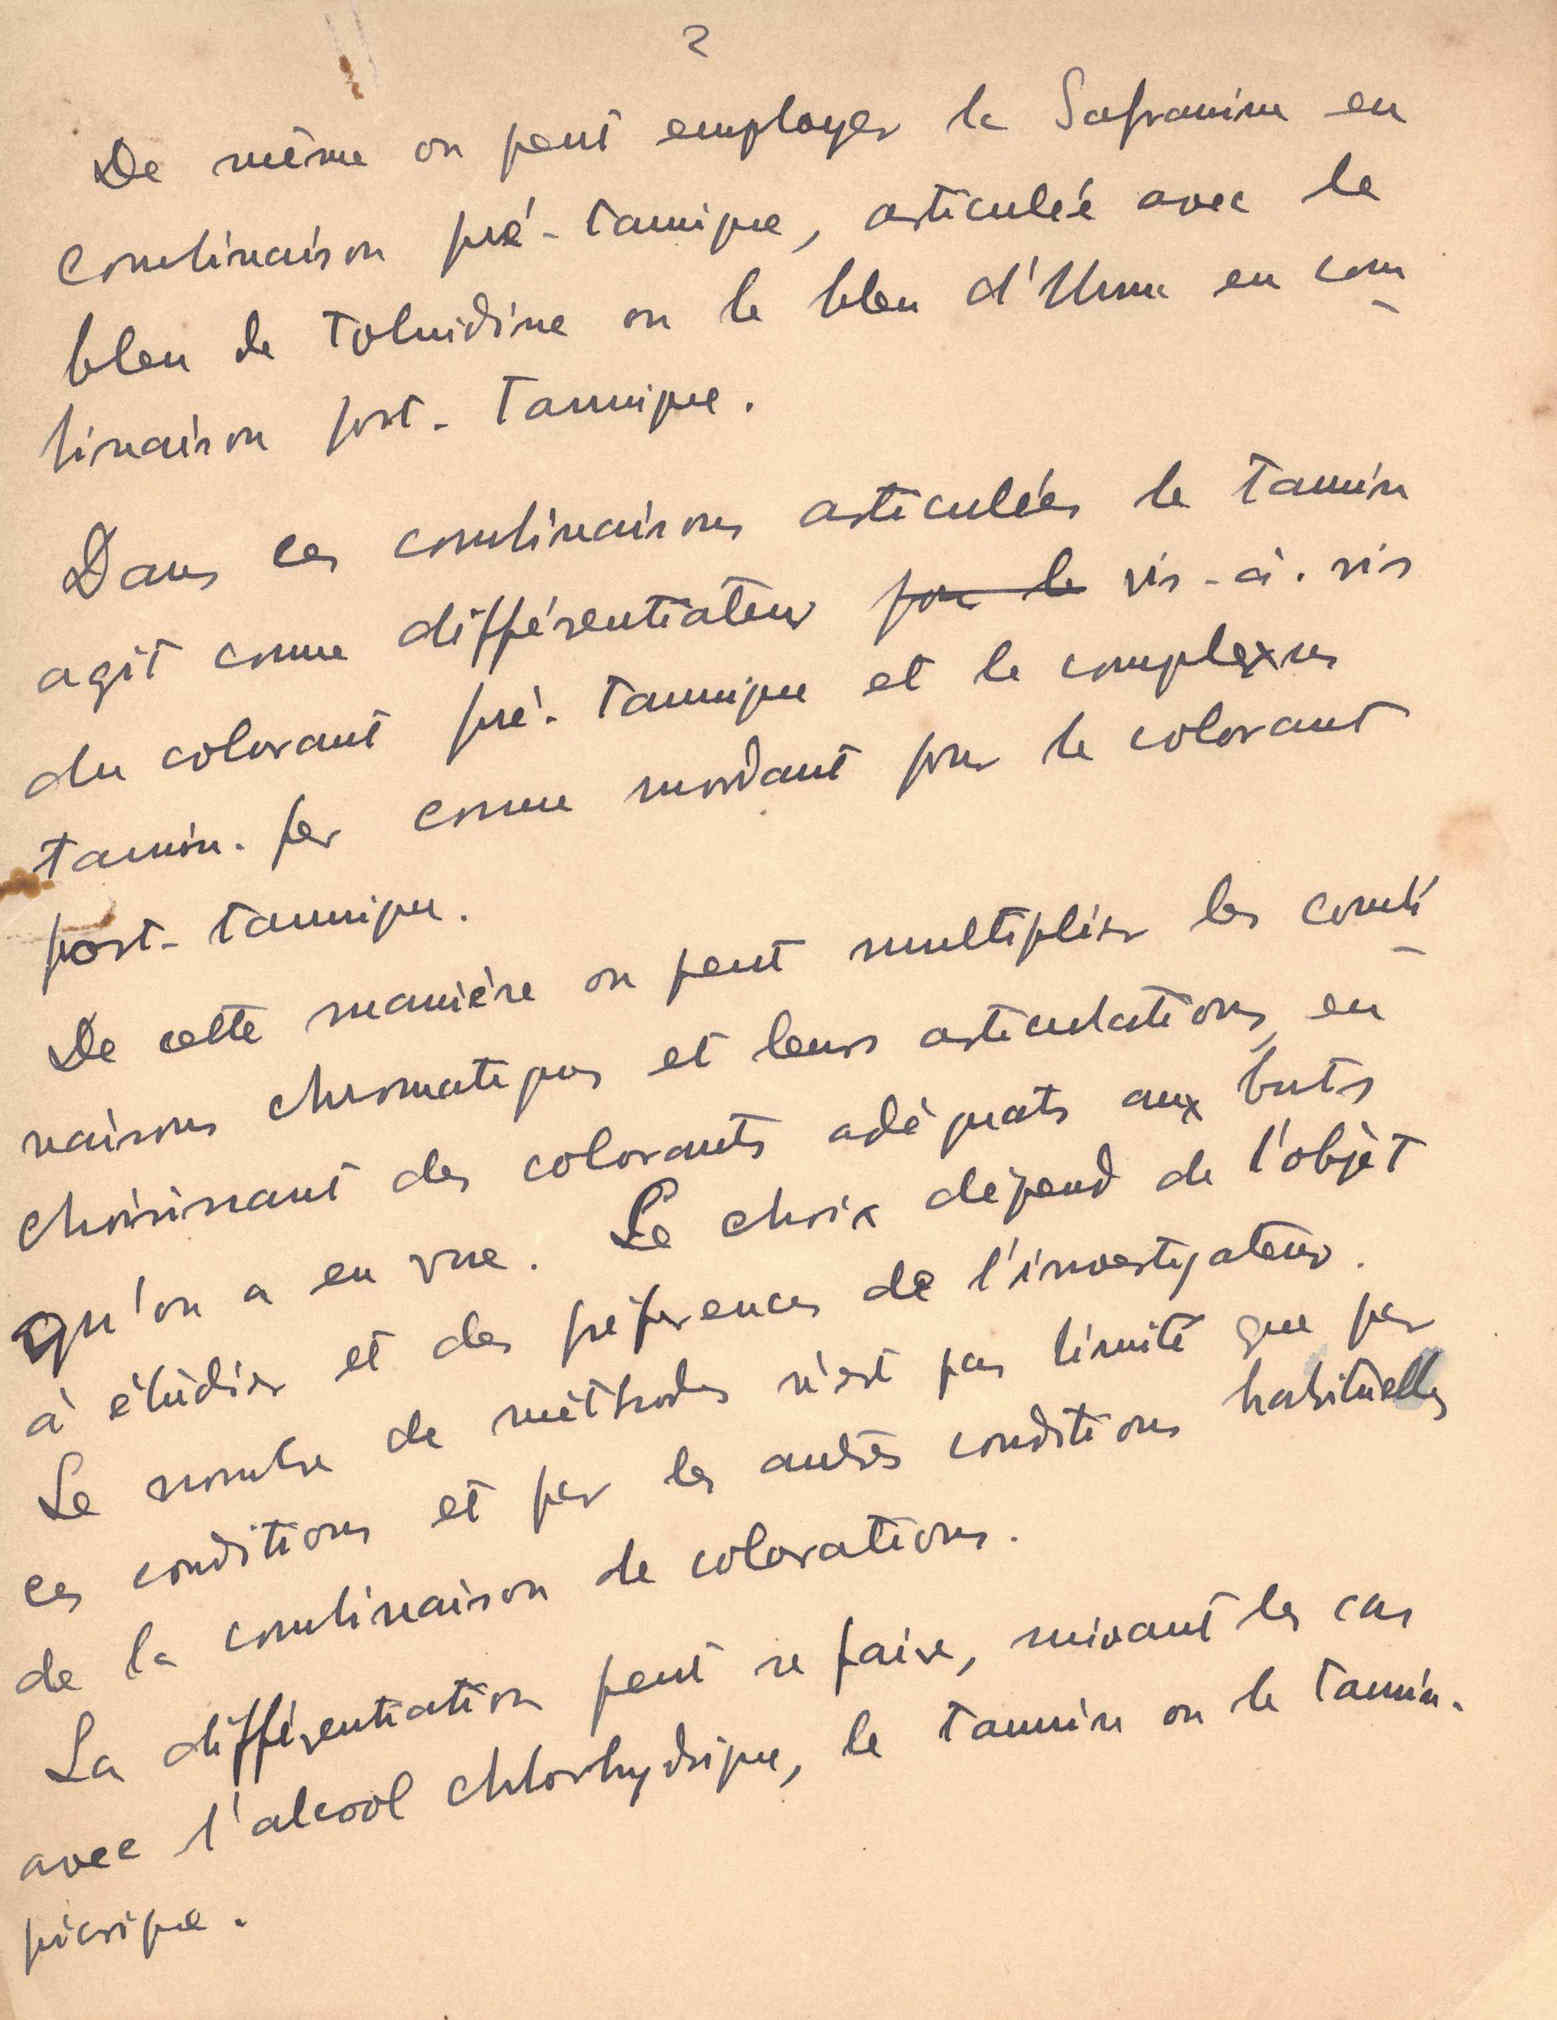 2
De même on peut employer la Safranine en
combinaison pré-tannique, articulée avec le
bleu de Toluidine ou le bleu d'Unna en com
binaison post-tannique.
Dans ces combinaisons articulées le tannin
agit comme différentiateur pour le vis-à-vis
du colorant pré-tannique et le complexus
tannin-fer comme mordant pour le colorant
post-tannique.
De cette manière on peut multiplier les combi
naisons chromatiques et leurs articulations, en
choisissant des colorants adéquats aux buts
qu'on a en vue. Le choix dépend de l'objèt
à étudier et des préferences de l'investigateur.
Le nombre de méthodes n'est pas limité que par
ces conditions et par les autres conditions habituelles
de la combinaison de colorations.
La différentiation peut se faire, suivant les cas
avec l'alcool chlorhydrique, le tannin ou le tannin-
picrique.